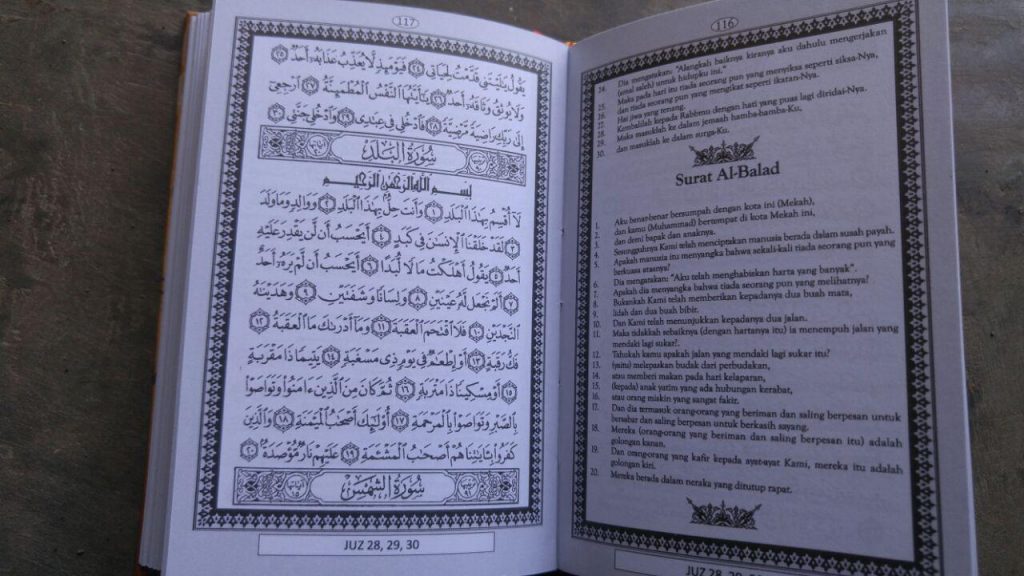 116
24. Dia mengatakan: "Alangkah baiknya kiranya aku dahulu mengerjakan
(amal saleh) untuk hidupku ini."
25. Maka pada hari itu tiada seorang pun yang menyiksa seperti siksa-Nya,
26. dan tiada seorang pun yang mengikat seperti ikatan-Nya.
27. Hai jiwa yang tenang.
28. Kembalilah kepada Rabbmu dengan hati yang puas lagi diridai-Nya.
29. Maka masuklah ke dalam jemaah hamba-hamba-Ku,
30. dan masuklah ke dalam surga-Ku.
Surat Al-Balad
1. Aku benar-benar bersumpah dengan kota ini (Mekah),
2. dan kamu (Muhammad) bertempat di kota Mekah ini,
3. dan demi bapak dan anaknya.
4. Sesungguhnya Kami telah menciptakan manusia berada dalam susah payah.
5. Apakah manusia itu menyangka bahwa sekali-kali tiada seorang pun yang
berkuasa atasnya?
6. Dia mengatakan: "Aku telah menghabiskan harta yang banyak".
7. Apakah dia menyangka bahwa tiada seorang pun yang melihatnya?
8. Bukankah Kami telah memberikan kepadanya dua buah mata,
9. lidah dan dua buah bibir.
10. Dan Kami telah menunjukkan kepadanya dua jalan.
11. Maka tidakkah sebaiknya (dengan hartanya itu) ia menempuh jalan yang
mendaki lagi sukar?.
12. Tahukah kamu apakah jalan yang mendaki lagi sukar itu?
13. (yaitu) melepaskan budak dari perbudakan,
14. atau memberi makan pada hari kelaparan,
15. (kepada) anak yatim yang ada hubungan kerabat,
16. atau orang miskin yang sangat fakir.
17. Dan dia termasuk orang-orang yang beriman dan saling berpesan untuk
bersabar dan saling berpesan untuk berkasih sayang.
18. Mereka (orang-orang yang beriman dan saling berpesan itu) adalah
golongan kanan.
19. Dan orang-orang yang kafir kepada ayat-ayat Kami, mereka itu adalah
golongan kiri.
20. Mereka berada dalam neraka yang ditutup rapat.
JUZ 28, 29,
117
يَقُولُ يَٰلَيْتَنِى قَدَّمْتُ لِحَيَاتِى ٢٤ فَيَوْمَئِذٍ لَّا يُعَذِّبُ عَذَابَهُۥٓ أَحَدٌ ٢٥
وَلَا يُوثِقُ وَثَاقَهُۥٓ أَحَدٌ ٢٦ يَٰٓأَيَّتُهَا ٱلنَّفْسُ ٱلْمُطْمَئِنَّةُ ٢٧ ٱرْجِعِىٓ
إِلَىٰ رَبِّكِ رَاضِيَةً مَّرْضِيَّةً ٢٨ فَٱدْخُلِى فِى عِبَٰدِى ٢٩ وَٱدْخُلِى جَنَّتِى ٣٠
سُورَةُ البَلَدِ
بِسْمِ ٱللَّهِ ٱلرَّحْمَٰنِ ٱلرَّحِيمِ
لَآ أُقْسِمُ بِهَٰذَا ٱلْبَلَدِ ١ وَأَنتَ حِلٌّۢ بِهَٰذَا ٱلْبَلَدِ ٢ وَوَالِدٍ وَمَا وَلَدَ
٣ لَقَدْ خَلَقْنَا ٱلْإِنسَٰنَ فِى كَبَدٍ ٤ أَيَحْسَبُ أَن لَّن يَقْدِرَ عَلَيْهِ
أَحَدٌ ٥ يَقُولُ أَهْلَكْتُ مَالًا لُّبَدًا ٦ أَيَحْسَبُ أَن لَّمْ يَرَهُۥٓ أَحَدٌ
٧ أَلَمْ نَجْعَل لَّهُۥ عَيْنَيْنِ ٨ وَلِسَانًا وَشَفَتَيْنِ ٩ وَهَدَيْنَٰهُ
ٱلنَّجْدَيْنِ ١٠ فَلَا ٱقْتَحَمَ ٱلْعَقَبَةَ ١١ وَمَآ أَدْرَىٰكَ مَا ٱلْعَقَبَةُ ١٢
فَكُّ رَقَبَةٍ ١٣ أَوْ إِطْعَٰمٌ فِى يَوْمٍ ذِى مَسْغَبَةٍ ١٤ يَتِيمًا ذَا مَقْرَبَةٍ
١٥ أَوْ مِسْكِينًا ذَا مَتْرَبَةٍ ١٦ ثُمَّ كَانَ مِنَ ٱلَّذِينَ ءَامَنُوا۟ وَتَوَاصَوْا۟
بِٱلصَّبْرِ وَتَوَاصَوْا۟ بِٱلْمَرْحَمَةِ ١٧ أُو۟لَٰٓئِكَ أَصْحَٰبُ ٱلْمَيْمَنَةِ ١٨ وَٱلَّذِينَ
كَفَرُوا۟ بِـَٔايَٰتِنَا هُمْ أَصْحَٰبُ ٱلْمَشْـَٔمَةِ ١٩ عَلَيْهِمْ نَارٌ مُّؤْصَدَةٌۢ ٢٠
سُورَةُ الشَّمْسِ
JUZ 28, 29, 30